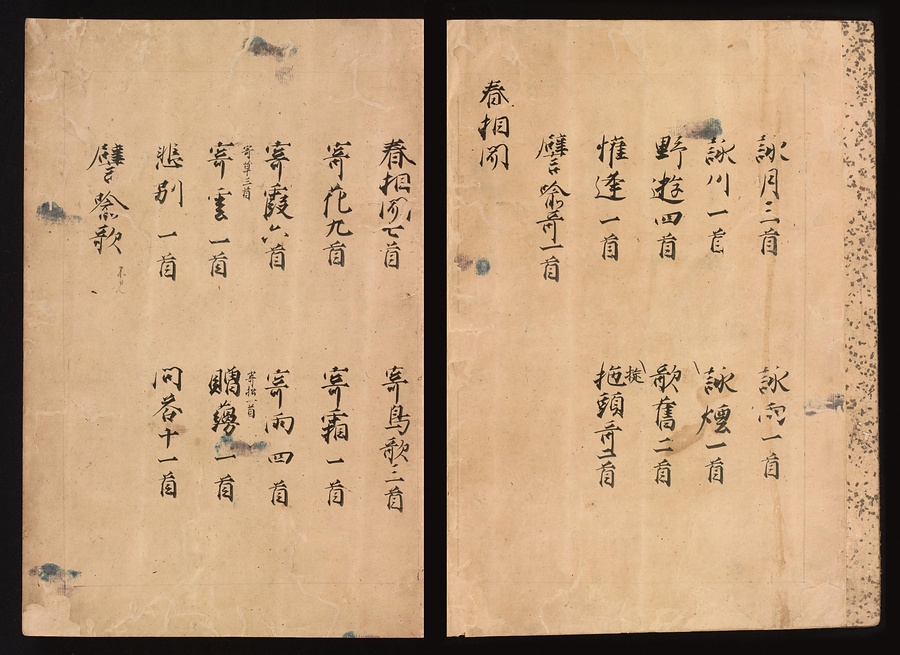 詠月三首
詠雨一首
詠川一首
詠煙一首
野遊四首
歎舊二首
懽逢一首
拖頭哥一首
旋
譬喩哥一首
春相聞
春相聞七首
寄鳥歌三首
寄花九首
寄霜一首
寄霞六首
寄雨四首
寄草三首
寄松一首
寄雲一首
贈蘰一首
悲別一首
問答十一首
譬喩歌